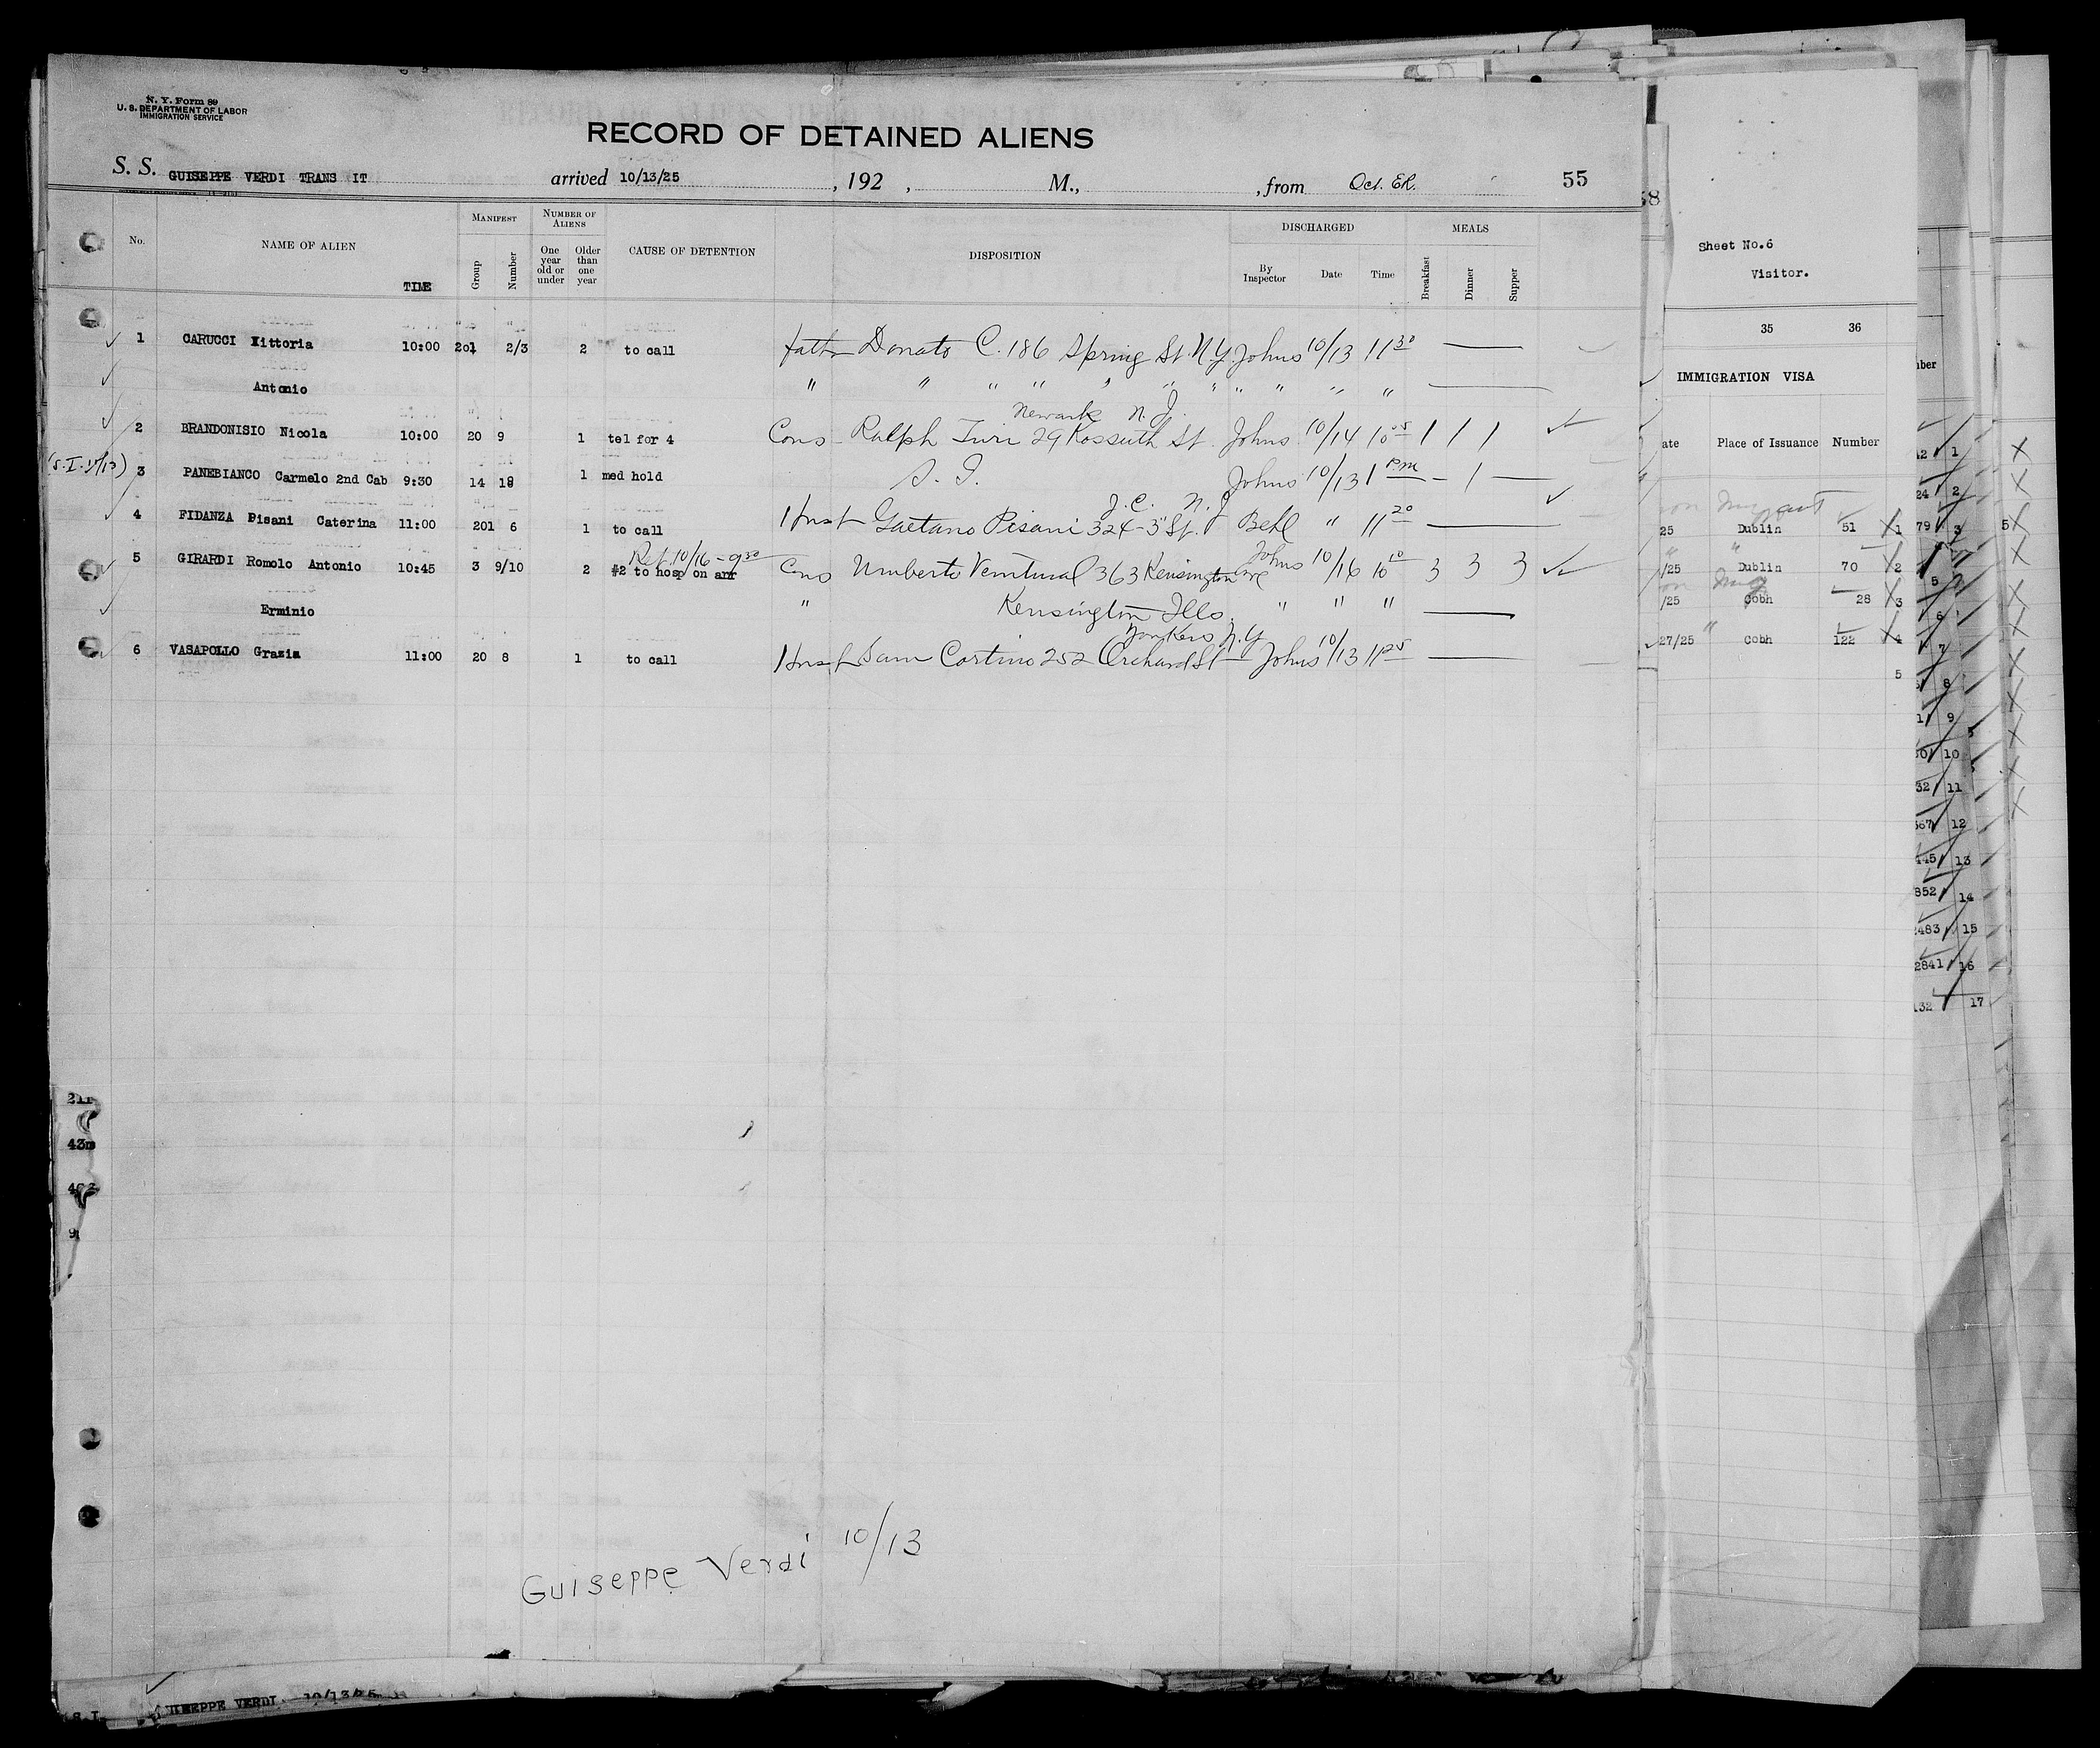 N. Y. Form 89
U. S. DEPARTMENT OF LABOR
IMMIGRATION SERVICE
RECORD OF DETAINED ALIENS
S. S. GUISEPPE VERDI TRANS IT arrived 10/13/25, 192 , M., , from Oct. ER. 55
No. NAME OF ALIEN TIME MANIFEST Group Number NUMBER OF ALIENS One year old or under Older than one year CAUSE OF DETENTION DISPOSITION DISCHARGED By Inspector Date Time MEALS Breakfast Dinner Supper
1 CARUCCI Vittoria 10:00 201 2/3 2 to call fath Donato C. 186 Spring St. N.Y. Johns 10/13 11 30 —
Antonio " " " " " " " " " " " —
Newark N. J.
2 BRANDONISIO Nicola 10:00 20 9 1 tel for 4 Cons Ralph Turi 29 Kossuth St. Johns 10/14 10 05 1 1 1
(S.I. 10/13) 3 PANEBIANCO Carmelo 2nd Cab 9:30 14 18 1 med hold S. I. Johns 10/13 1 PM – 1 —
J.C. N.J
4 FIDANZA Pisani Caterina 11:00 201 6 1 to call Husb Gaetano Pisani 324-3" St. Behl " 11 20 —
Ret. 10/16 - 9 30
5 GIRARDI Romolo Antonio 10:45 3 9/10 2 #2 to hosp on arr Cons Umberto Ventural 363 Kensington Ave Johns 10/16 10 10 3 3 3
Erminio " Kensington Ills " " " —
Yonkers N.Y
6 VASAPOLLO Grazia 11:00 20 8 1 to call Husb Sam Cortino 252 Orchard St Johns 10/13 11 25 —
43m
9
Guiseppe Verdi 10/13
S.I. VERDI 10/13/25
Sheet No.6
Visitor.
35 36
IMMIGRATION VISA
ate Place of Issuance Number
25 Dublin 51 1
/25 Dublin 70 2
/25 Cobh 28 3
27/25 " Cobh 122 4
5
42 1
24 2
79 3 5
5
6
7
8
1/ 9
10
32 11
567 12
445 13
852 14
483 15
2841 16
132 17